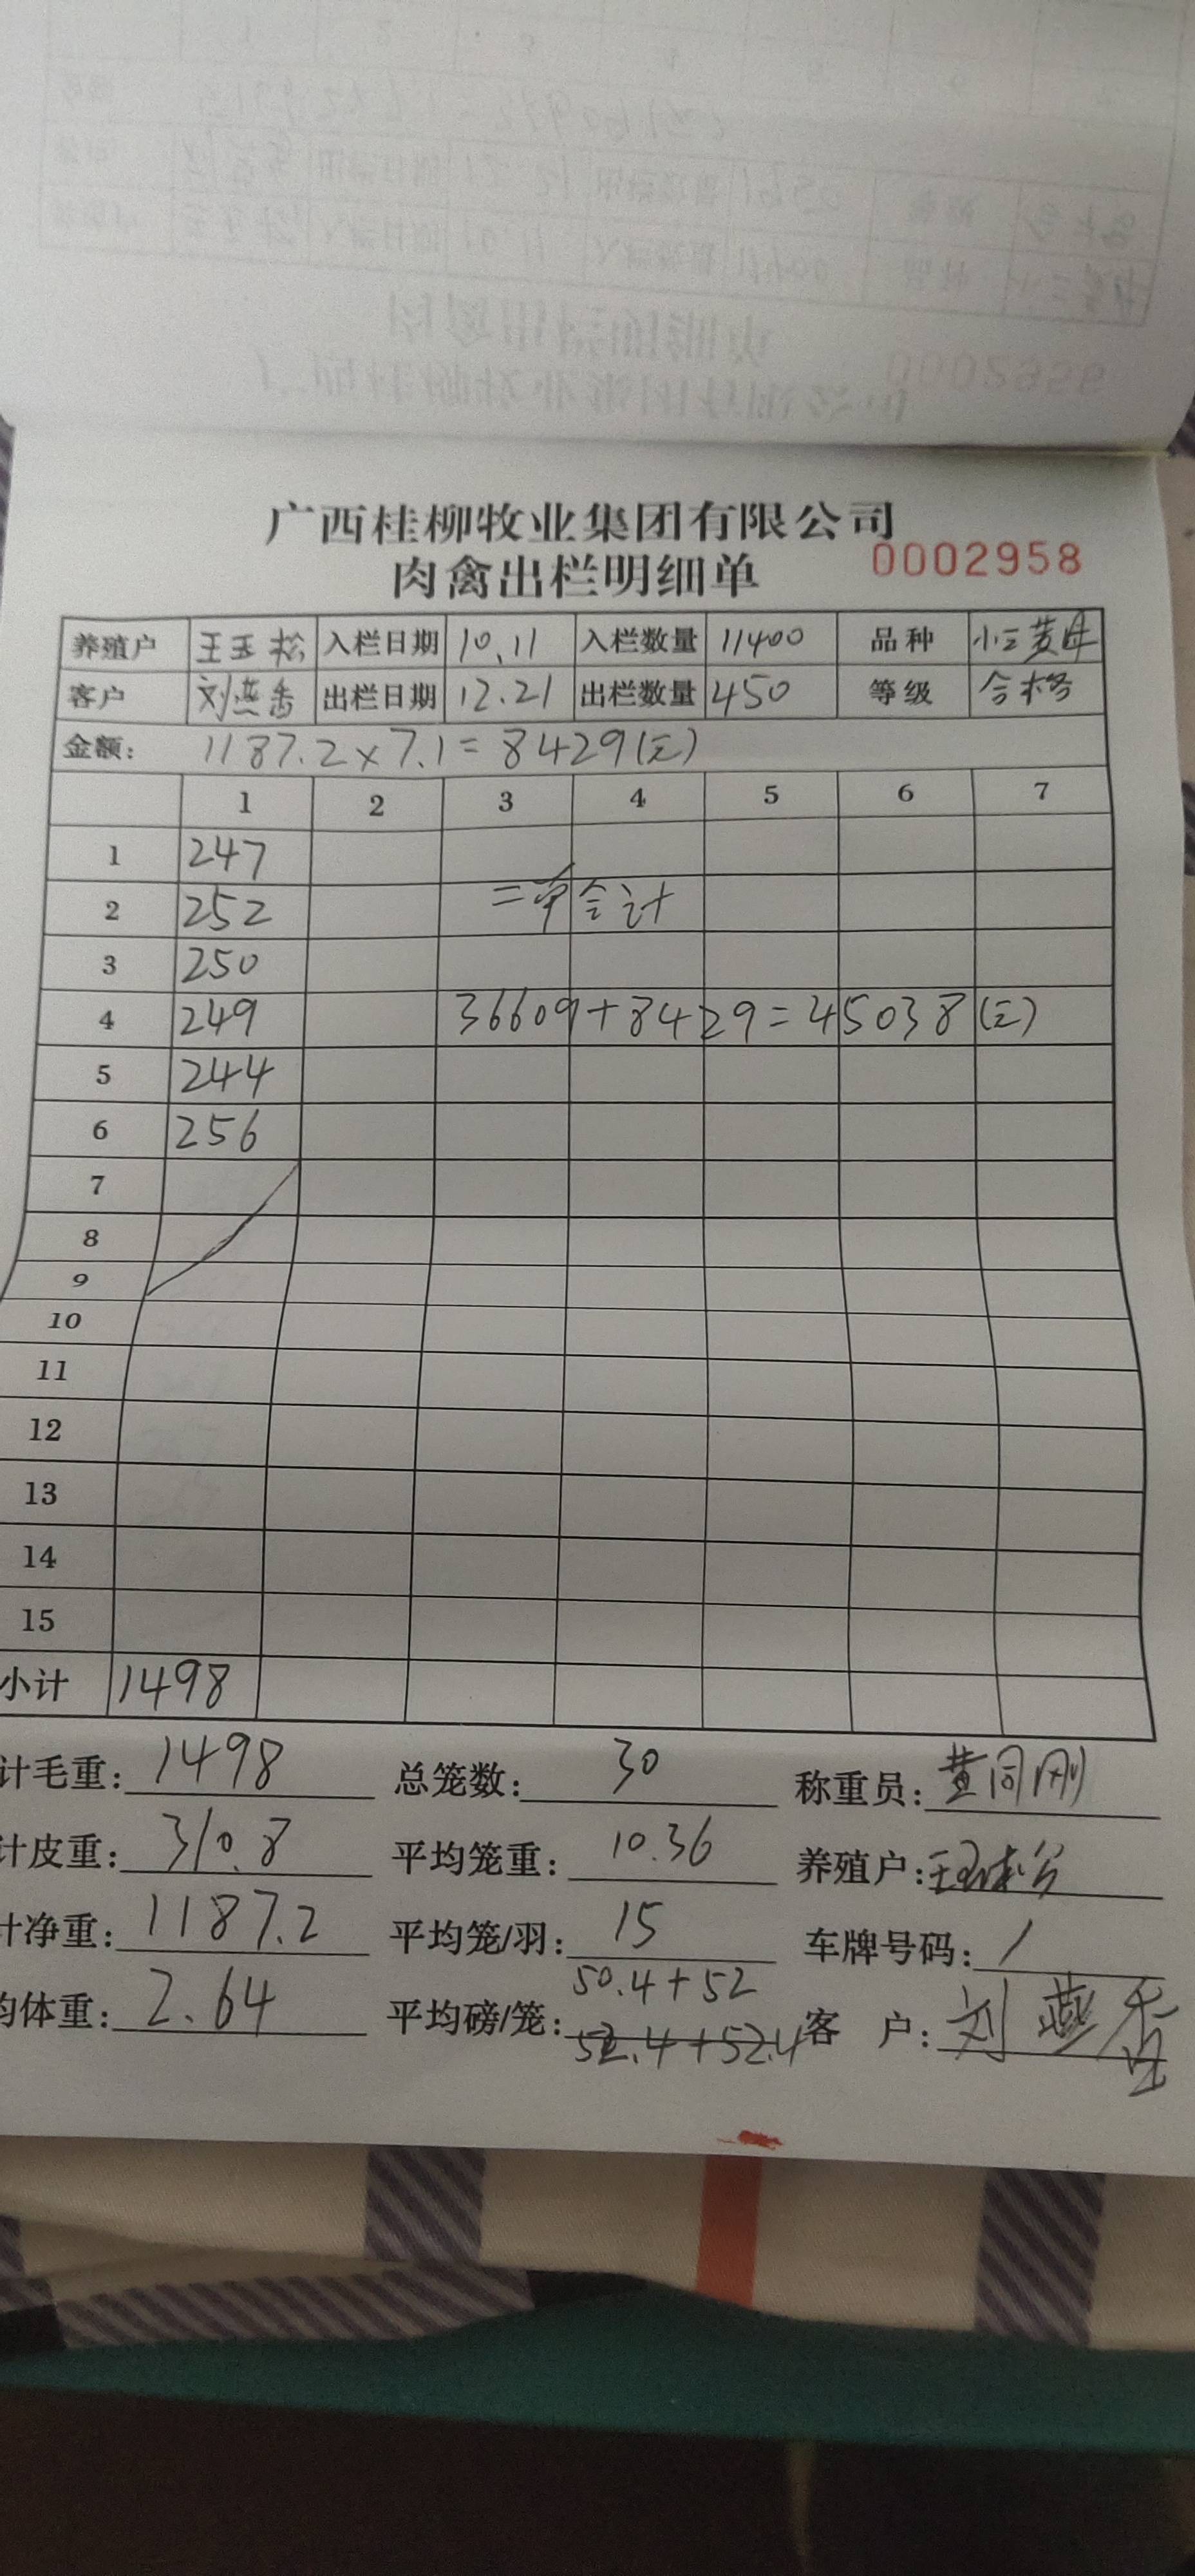 广西桂柳牧业集团有限公司
肉禽出栏明细单 0002958
养殖户 王玉松 入栏日期 10.11 入栏数量 11400 品种 小三黄母
客户 刘燕香 出栏日期 12.21 出栏数量 450 等级 合格
金额: 1187.2×7.1=8429(元)
1 2 3 4 5 6 7
1 247
2 252 二单合计
3 250
4 249 36609+8429=45038(元)
5 244
6 256
7
8
9
10
11
12
13
14
15
小计 1498
计毛重: 1498 总笼数: 30 称重员: 黄同刚
计皮重: 310.8 平均笼重: 10.36 养殖户: 王玉松
计净重: 1187.2 平均笼/羽: 15 车牌号码: /
50.4+52
均体重: 2.64 平均磅/笼: 52.4+52.4 客 户: 刘燕香